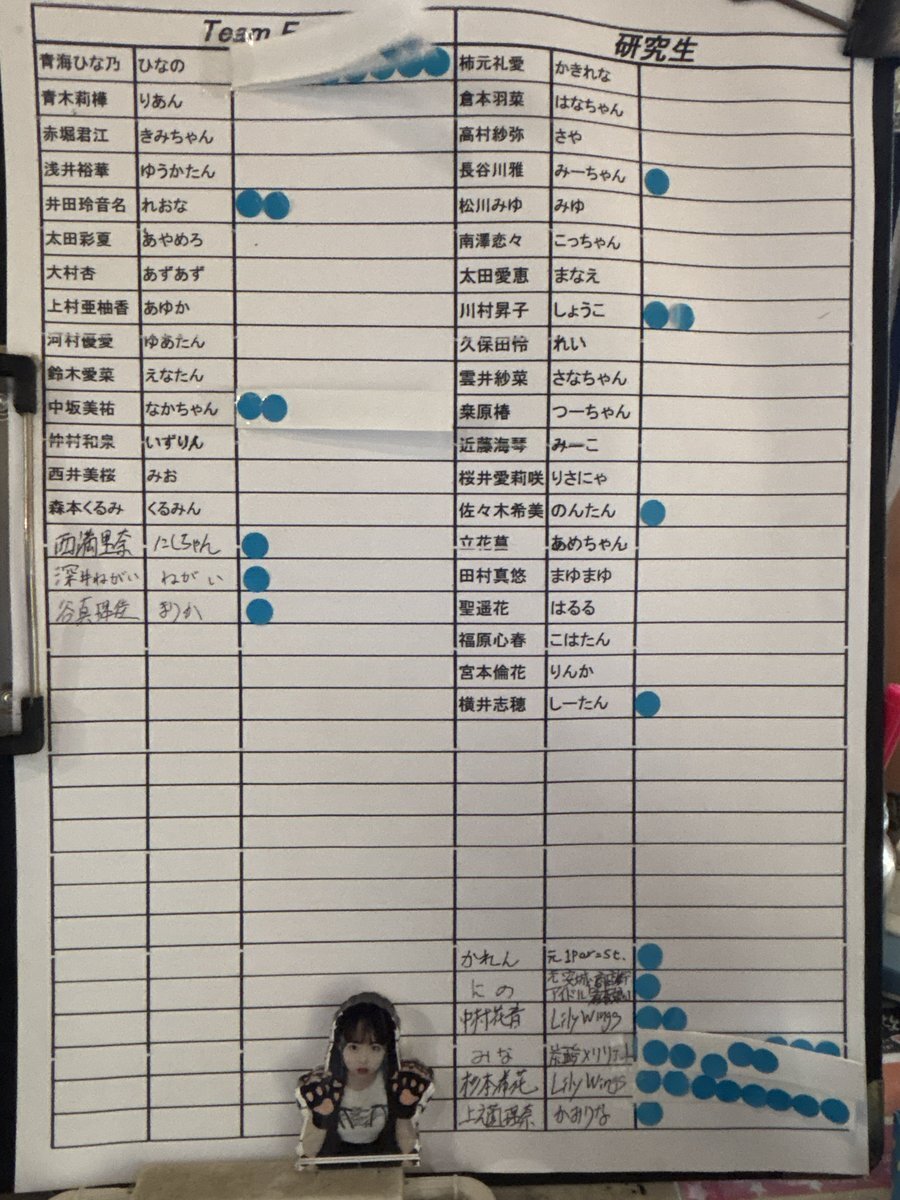 Team E
青海ひな乃 ひなの
青木莉樺 りあん
赤堀君江 きみちゃん
浅井裕華 ゆうかたん
井田玲音名 れおな
太田彩夏 あやめろ
大村杏 あずあず
上村亜柚香 あゆか
河村優愛 ゆあたん
鈴木愛菜 えなたん
中坂美祐 なかちゃん
仲村和泉 いずりん
西井美桜 みお
森本くるみ くるみん
西満里奈 にしちゃん
深井ねがい ねがい
谷真理佳 まりか
研究生
柿元礼愛 かきれな
倉本羽菜 はなちゃん
高村紗弥 さや
長谷川雅 みーちゃん
松川みゆ みゆ
南澤恋々 こっちゃん
太田愛恵 まなえ
川村昇子 しょうこ
久保田怜 れい
雲井紗菜 さなちゃん
桒原椿 つーちゃん
近藤海琴 みーこ
桜井愛莉咲 りさにゃ
佐々木希美 のんたん
立花菖 あめちゃん
田村真悠 まゆまゆ
聖遥花 はるる
福原心春 こはたん
宮本倫花 りんか
横井志穂 しーたん
かれん 元
にの アイドル
中村花音 LilyWings
みな
杉本希花 LilyWings
かおりな